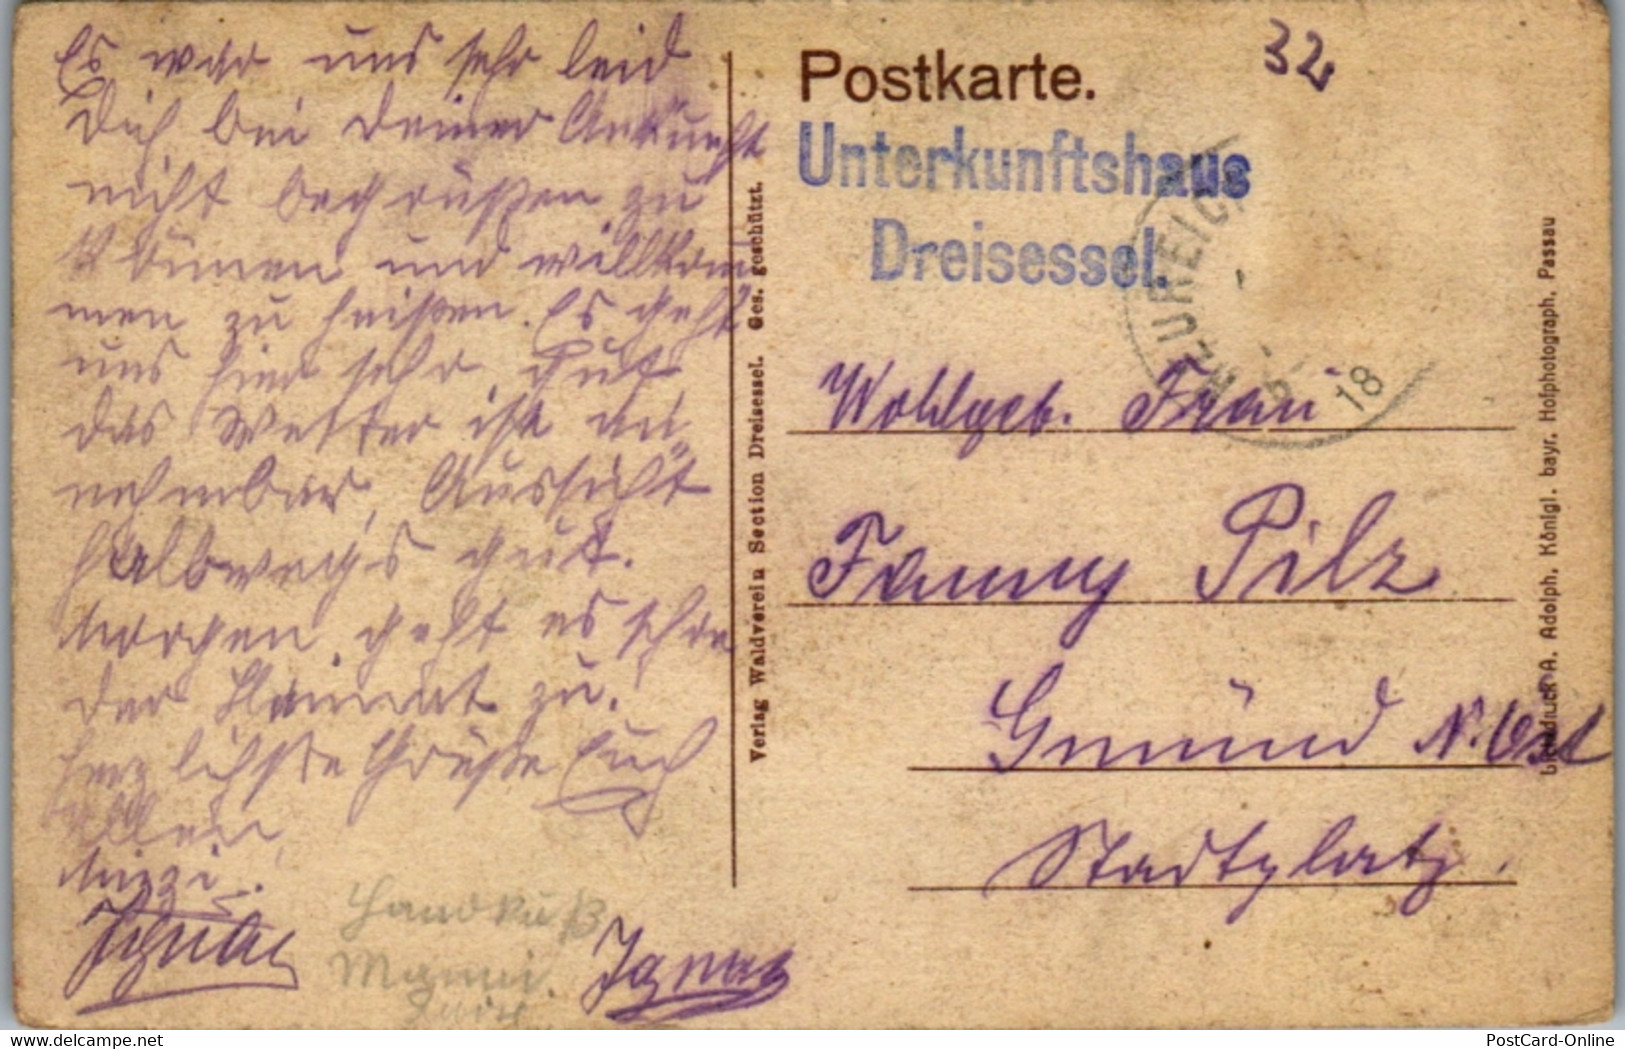 Es war uns sehr leid
Dich bei Deiner Ankunft
nicht begrüßen zu
können und willkom
men zu heißen. Es geht
uns hier sehr gut
das Wetter ist an
nehmbar, Aussicht
halbwegs gut.
Morgen geht es schon
der Heimat zu.
Herzlichste Grüße Euch
Allen,
Mizzi.
Ignac
Handkuß
Ignac
Postkarte.
32
Unterkunftshaus
Dreisessel.
18
Wohlgeb. Frau
Fanny Pilz
Gmünd N. Öst
Stadtplatz.
Verlag Waldverein Section Dreisessel. Ges. geschützt.
Lichtdruck A. Adolph, Königl. bayr. Hofphotograph, Passau
hip.li
PostCard-Online